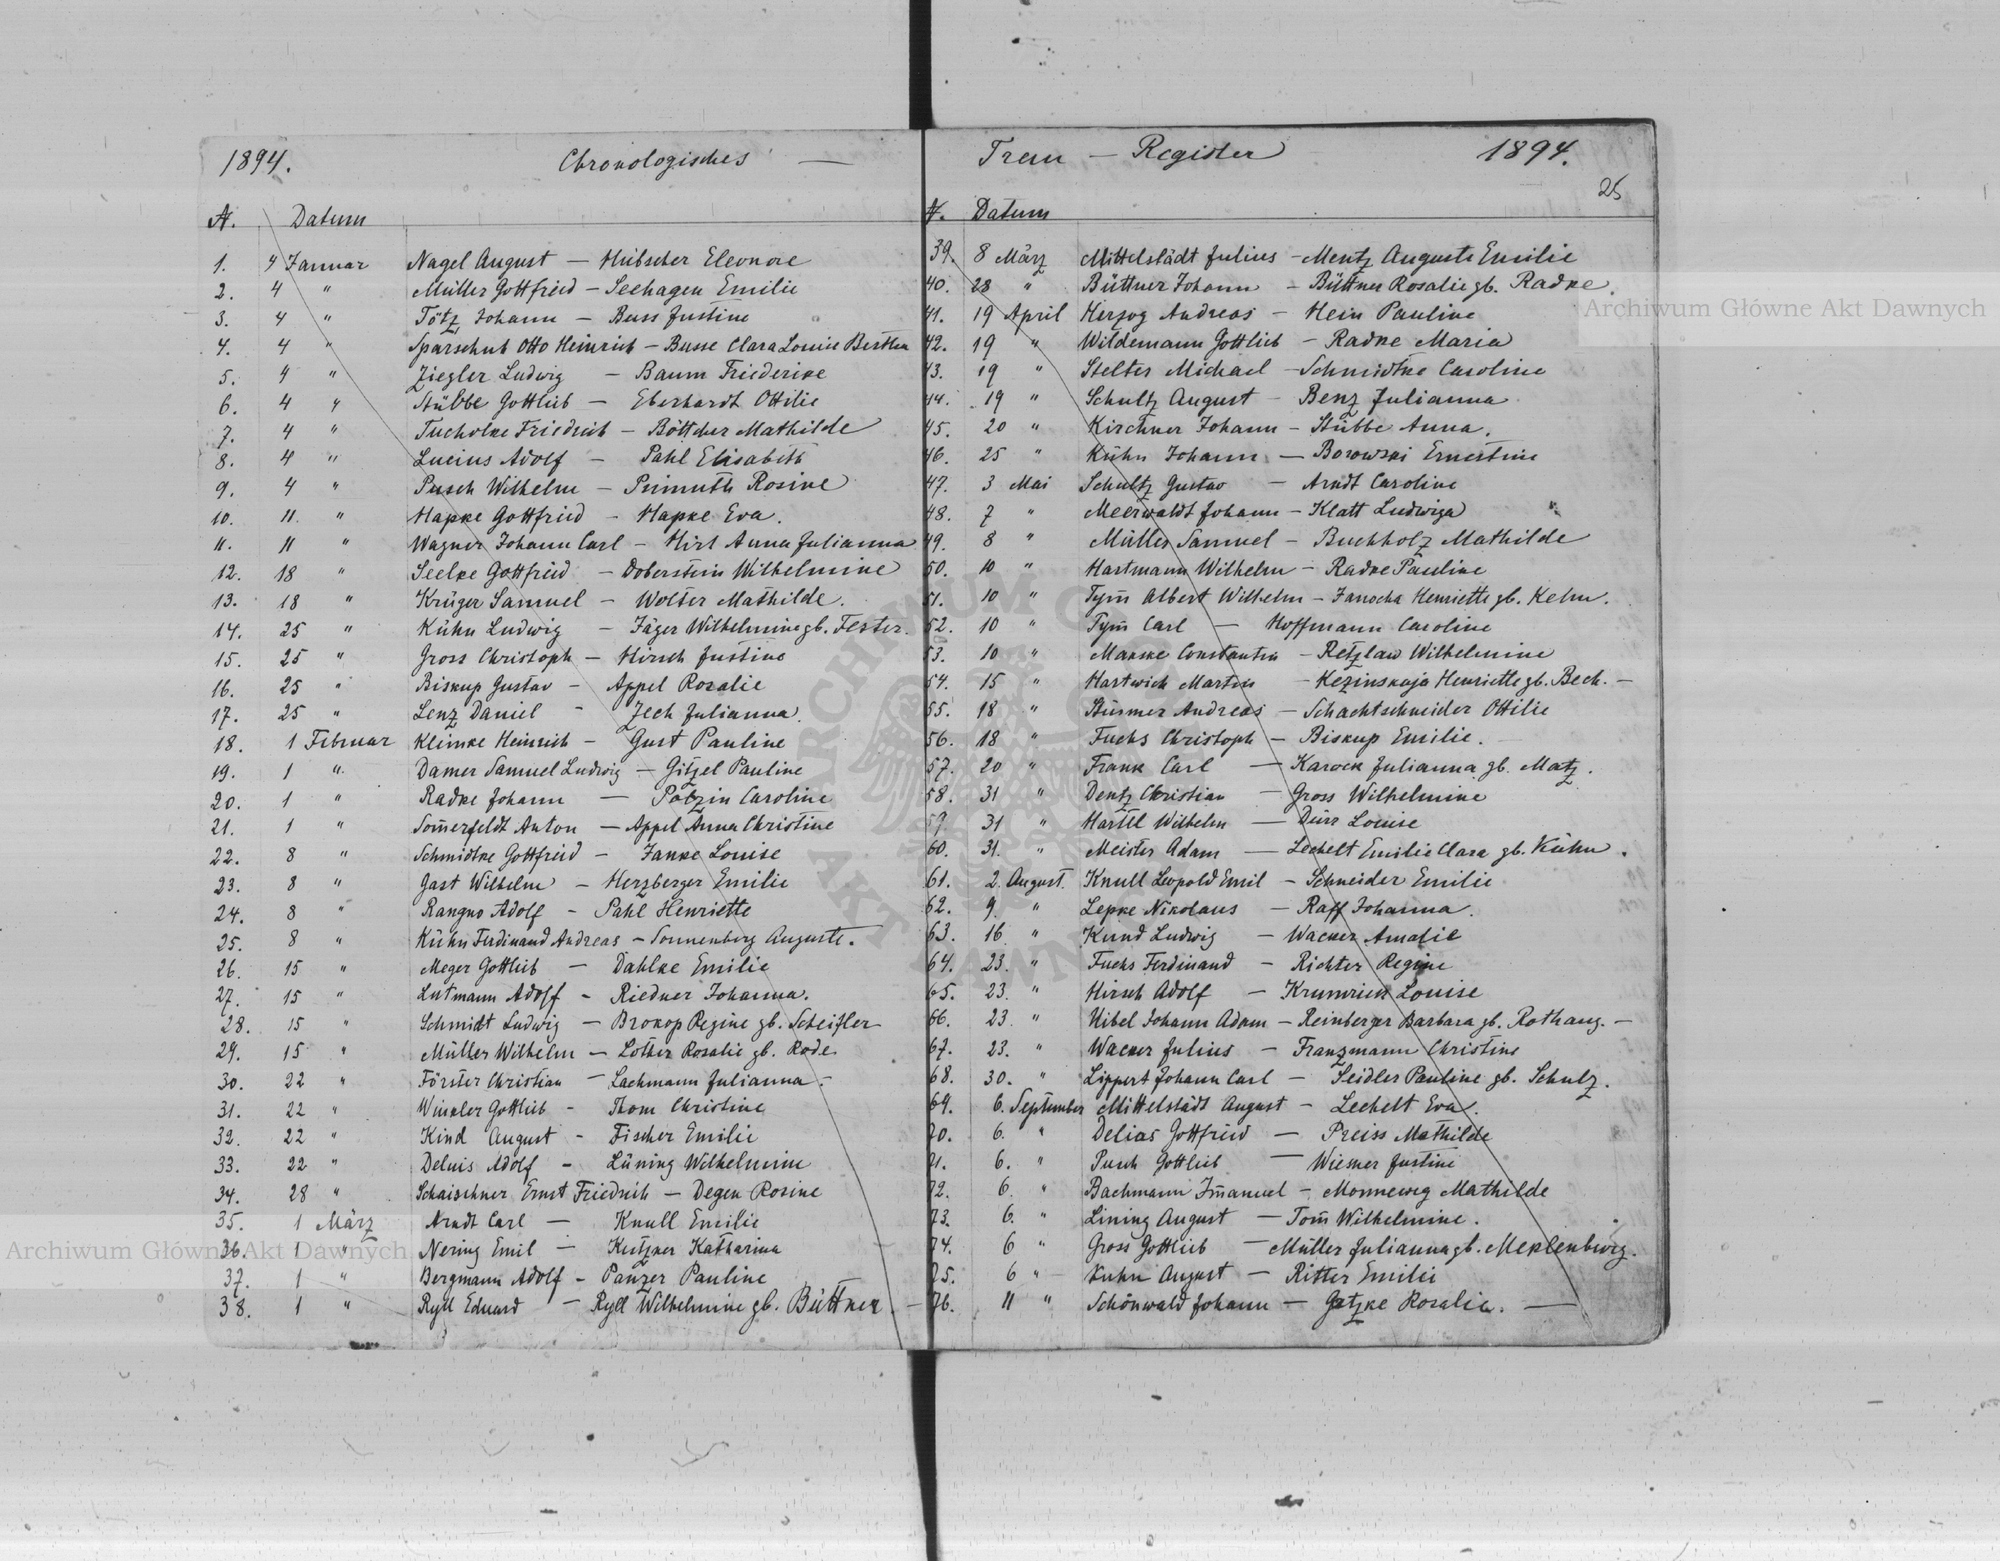 1894. Chronologisches —
№. Datum
1. 4 Januar Nagel August — Hübscher Eleonore
2. 4 " Müller Gottfried — Seehagen Emilie
3. 4 " Tötz Johann — Buss Justine
4. 4 " Sparschuh Otto Heinrich — Busse Clara Louise Bertha
5. 4 " Ziegler Ludwig — Baum Friederike
6. 4 " Stübbe Gottlieb — Eberhardt Ottilie
7. 4 " Tucholke Friedrich — Böttcher Mathilde
8. 4 " Lucius Adolf — Pahl Elisabeth
9. 4 " Pusch Wilhelm — Rosine
10. 11. " Hapke Gottfried — Hapke Eva.
11. 11 " Wagner Johann Carl — Hirt Anna Julianna
12. 18 " Seelke Gottfried — Doberstein Wilhelmine
13. 18 " Krüger Samuel — Wolter Mathilde.
14. 25 " Kühn Ludwig — Jäger Wilhelmine gb. Fester.
15. 25 " Gross Christoph — Hirsch Justine
16. 25 " Biskup Gustav — Appel Rosalie
17. 25 " Lenz Daniel — Zech Julianna.
18. 1 Februar Klimke Heinrich — Gust Pauline
19. 1 " Damer Samuel Ludwig — Gitzel Pauline
20. 1 " Radke Johann — Potzin Caroline
21. 1 " Som̄erfeldt Anton — Appel Anna Christine
22. 8 " Schmidtke Gottfried — Janke Louise
23. 8 " Gast Wilhelm — Herzberger Emilie
24. 8 " Rangno Adolf — Pahl Henriette
25. 8 " Kühn Ferdinand Andreas — Sonnenberg Auguste.
26. 15 " Meger Gottlieb — Dahlke Emilie
27. 15 " Lutmann Adolf — Riedner Johanna.
28. 15 " Schmidt Ludwig — Brokop Regine gb. Scheifler
29. 15 " Müller Wilhelm — Lother Rosalie gb. Rode.
30. 22 " Förster Christian — Lachmann Julianna.
31. 22 " Winkler Gottlieb — Thom Christine
32. 22 " Kind August — Fischer Emilie
33. 22 " Adolf — Lüning Wilhelmine
34. 28 " Schaischner Ernst Friedrich — Degen Rosine
35. 1 März Arndt Carl — Knull Emilie
36. 1 " Nering Emil — Katharina
37. 1 " Bergmann Adolf — Panzer Pauline
38. 1 " Ryll Eduard — Ryll Wilhelmine gb. Büttner. —
Trau — Register 1894.
25
№. Datum
39. 8 März Mittelstädt Julius — Mentz Auguste Emilie
40. 28 " Büttner Johann — Büttner Rosalie gb. Radke.
41. 19 April Herzog Andreas — Hein Pauline
42. 19 " Wildemann Gottlieb — Radke Maria
43. 19 " Stelter Michael — Schmidtke Caroline
44. 19 " Schultz August — Benz Julianna
45. 20 " Kirchner Johann — Stübbe Anna.
46. 25 " Kühn Johann — Borowski Ernestine
47. 3 Mai Schultz Gustav — Arndt Caroline
48. 7 " Meerwaldt Johann — Klatt Ludwiga
49. 8 " Müller Samuel — Buchholz Mathilde
50. 10 " Hartmann Wilhelm — Radke Pauline
51. 10 " Tym̄ Albert Wilhelm — Janocha Henriette gb. Kelm.
52. 10 " Tym̄ Carl — Hoffmann Caroline
53. 10 " Manske Constantin — Retzlaw Wilhelmine
54. 15 " Hartwich Martin — Kezinskaja Henriette gb. Bech. —
55. 18 " Stürmer Andreas — Schachtschneider Ottilie
56. 18 " Fuchs Christoph — Biskup Emilie.
57. 20 " Frank Carl — Karock Julianna gb. Matz.
58. 31 " Dentz Christian — Gross Wilhelmine
59. 31 " Härtel Wilhelm — Dürr Louise
60. 31. " Meister Adam — Lechelt Emilie Clara gb. Kühn.
61. 2. August. Knull Leopold Emil — Schneider Emilie
62. 9. " Lepke Nikolaus — Raff Johanna.
63. 16 " Kund Ludwig — Wacker Amalie
64. 23. " Fuchs Ferdinand — Richter Regine
65. 23. " Hirsch Adolf — Krumrick Louise
66. 23. " Hibel Johann Adam — Reinberger Barbara gb. Rothaug. —
67. 23. " Wacker Julius — Franzmann Christine
68. 30. " Lippert Johann Carl — Seidler Pauline gb. Schulz.
69. 6. September Mittelstädt August — Lechelt Eva.
70. 6. " Delias Gottfried — Preiss Mathilde
71. 6. " Pusch Gottlieb — Wiesner Justine
72. 6. " Bachmann Im̄anuel — Monneweg Mathilde
73. 6. " Lining August — Tom̄ Wilhelmine.
74. 6 " Gross Gottlieb — Müller Julianna gb. Meklenburg.
75. 6 " Kuhn August — Ritter Emilie
76. 11 " Schönwald Johann — Gatzke Rosalie. —
Archiwum Główne Akt Dawnych
Archiwum Główne Akt Dawnych